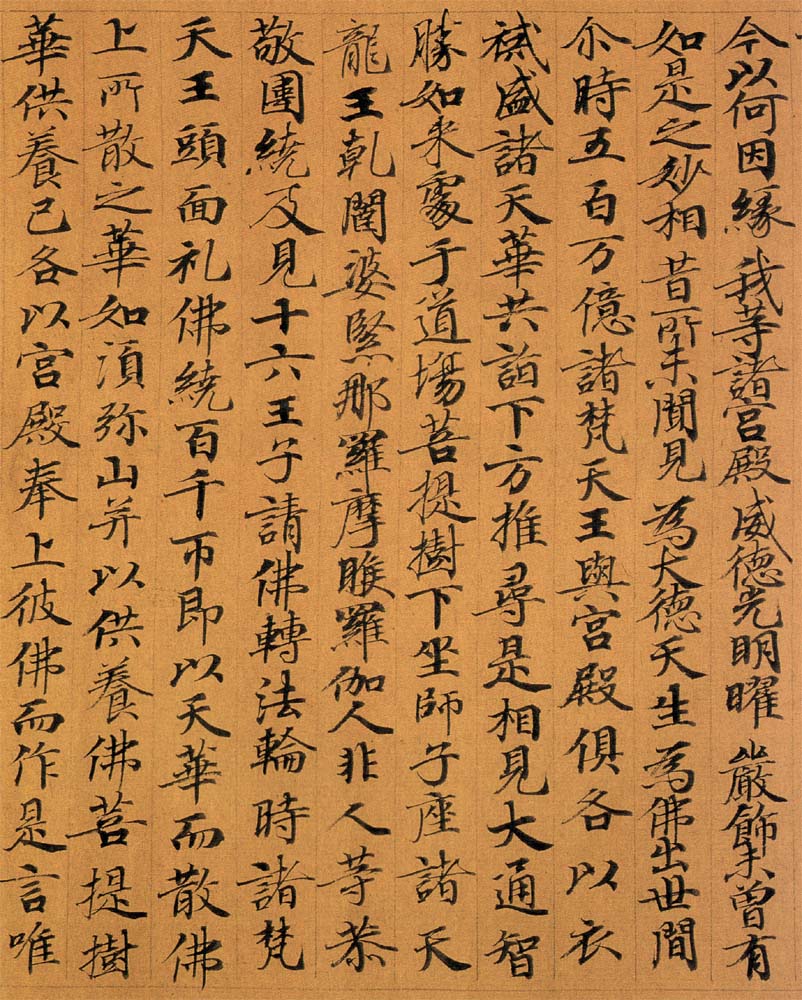 今以何因緣我等諸宮殿威德光明曜嚴飾未曾有
如是之妙相昔所未聞見為大德天生為佛出世間
尒時五百万億諸梵天王與宮殿俱各以衣
裓盛諸天華共詣下方推尋是相見大通智
勝如来處于道場菩提樹下坐師子座諸天
龍王乹闥婆緊那羅摩睺羅伽人非人等恭
敬圍繞及見十六王子請佛轉法輪時諸梵
天王頭面礼佛繞百千帀即以天華而散佛
上所散之華如湏弥山并以供養佛菩提樹
華供養已各以宮殿奉上彼佛而作是言唯